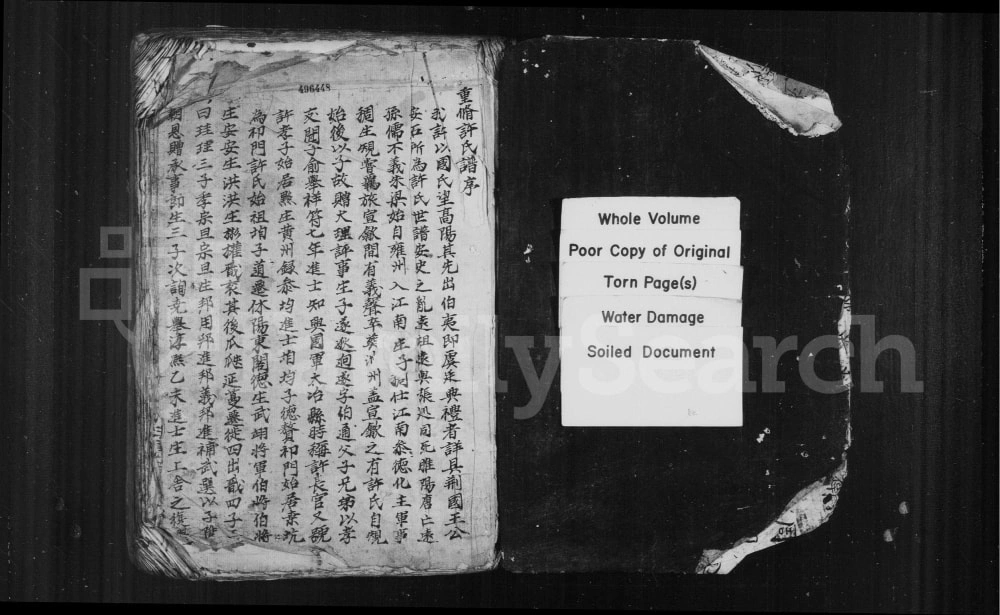 重脩許氏譜序
我許以國氏望高陽其先出伯夷即虞廷典禮者詳具荊國王公
安石所為許氏世譜安史之亂遠祖遠與張巡同死睢陽唐亡遠
孫儒不義朱梁始自雍州入江南生子 仕江南參德化主軍事
稠生規嘗羈旅宣歙間有義聲卒葬 州盖宣歙之有許氏自規
始後以子故贈大理評事生子遂 遂字伯通父子兄弟以孝
文聞子俞舉祥符七年進士知興國軍大冶縣時稱許長官又號
許孝子始居黟生黄州録叅均進士 均子德贇 門始居 坑
為 門許氏始祖 子 遷休陽東閣德生武翊將軍伯 伯將
生安安生洪洪生 其後瓜瓞延蔓遷徙四出 四子
曰珪理三子孝宗旦宗旦生邦用邦進邦義邦進補武選以子
朝恩贈承事郎生三子次詢克舉淳熈乙未進士生工舍之
406448
Whole Volume
Poor Copy of Original
Torn Page(s)
Water Damage
Soiled Document
FamilySearch